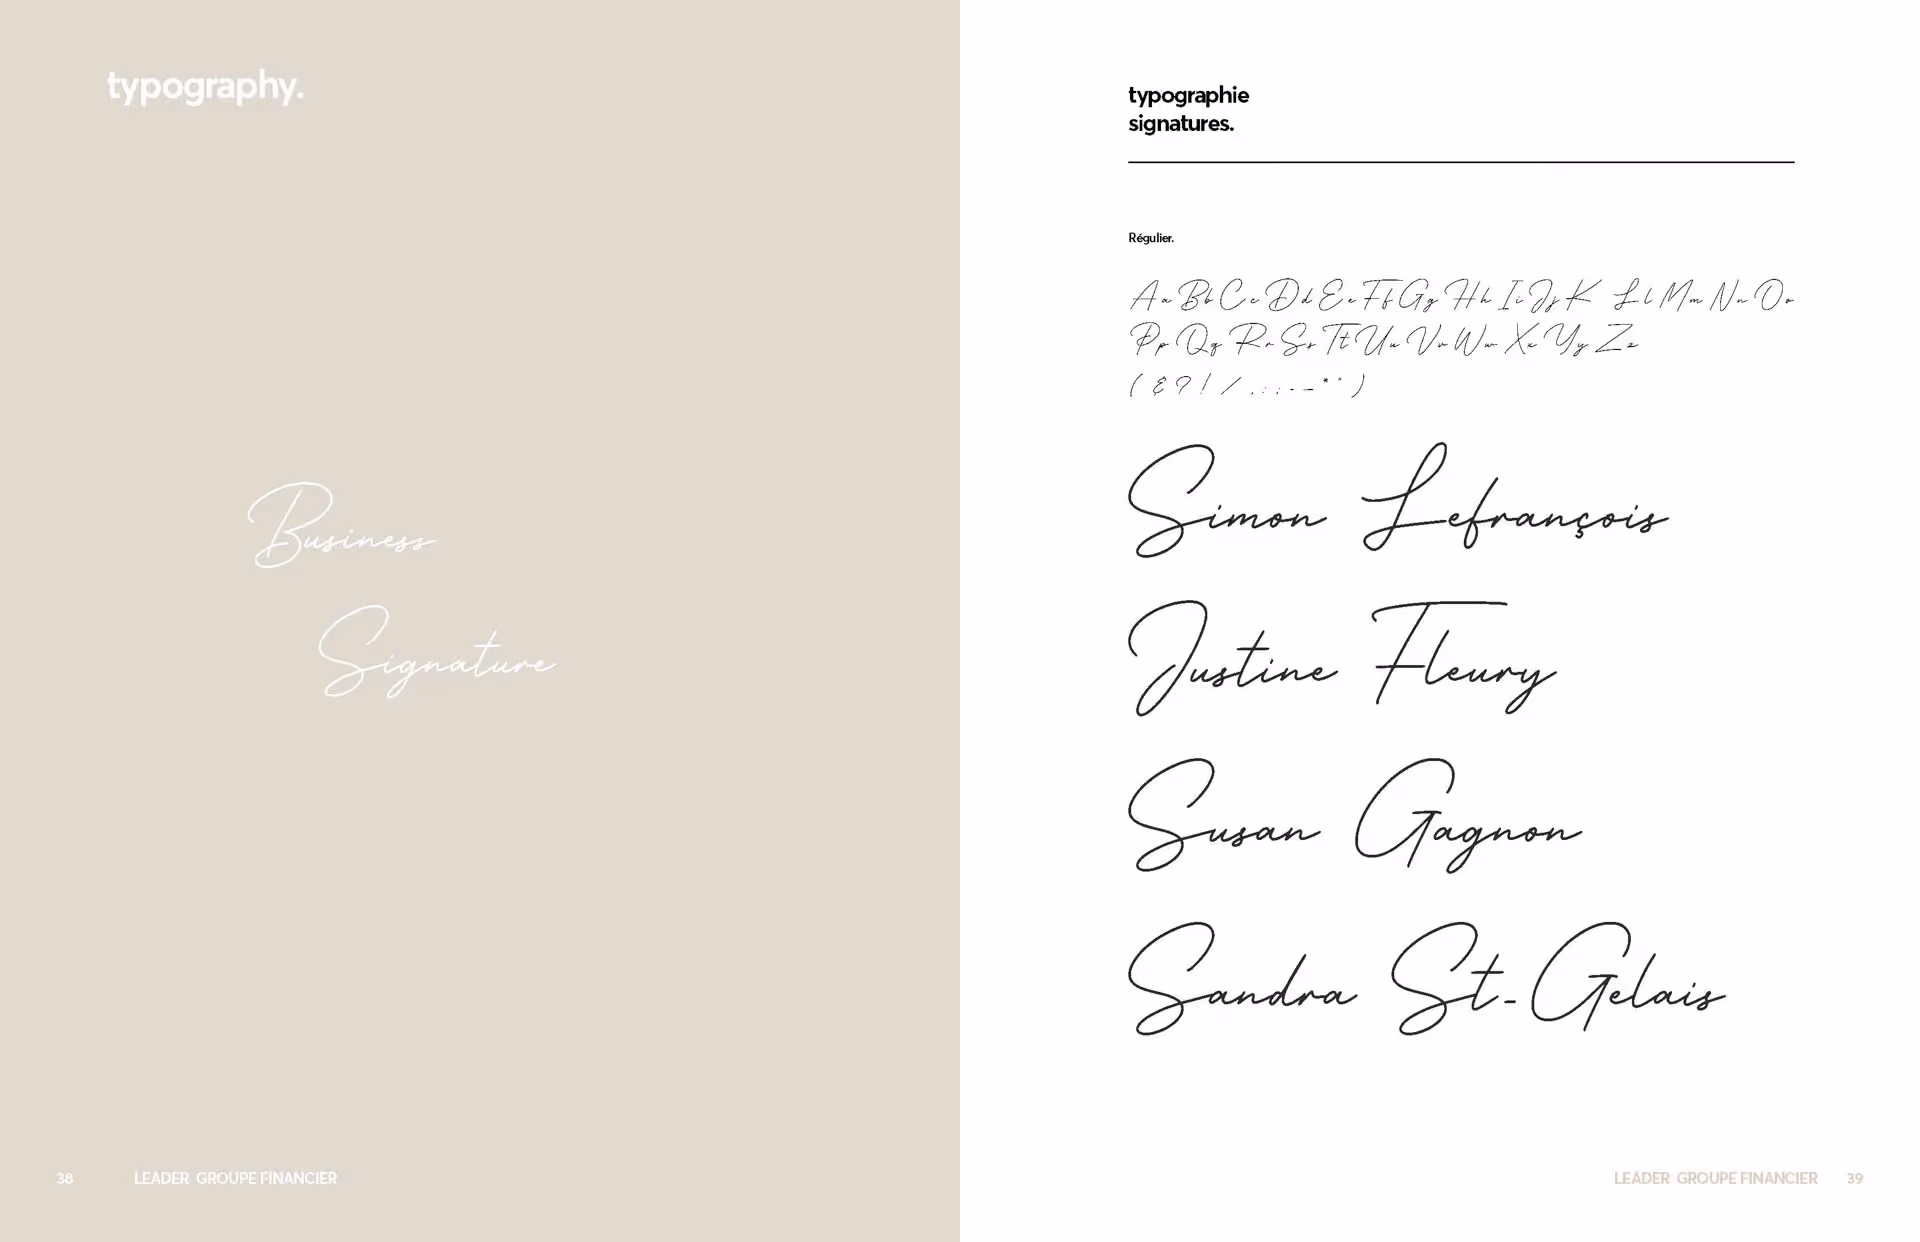 typography.
Business
Signature
38 LEADER GROUPE FINANCIER
typographie
signatures.
Régulier.
Aa Bb Cc Dd Ee Ff Gg Hh Ii Jj K Ll Mm Nn Oo
Pp Qq Rr Ss Tt Uu Vv Ww Xx Yy Zz
( & ? ! / , : ; - – * " )
Simon Lefrançois
Justine Fleury
Susan Gagnon
Sandra St-Gelais
LEADER GROUPE FINANCIER 39